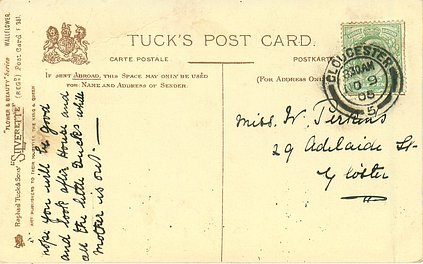 TUCK'S POST CARD.
CARTE POSTALE
POSTKARTE
IF SENT ABROAD, THIS SPACE MAY ONLY BE USED
FOR NAME AND ADDRESS OF SENDER.
(FOR ADDRESS ONLY)
GLOUCESTER
OC 9
05
Miss. W. Perkins
29 Adelaide St
Gloster
hope you will be good
and look after House and
all the little Ducks while
Mother is out.
"FLOWER & BEAUTY" Series WALLFLOWER.
"SILVERETTE" (REGD) Post Card
Raphael Tuck & Sons'
ART PUBLISHERS TO THEIR MAJESTIES THE KING & QUEEN